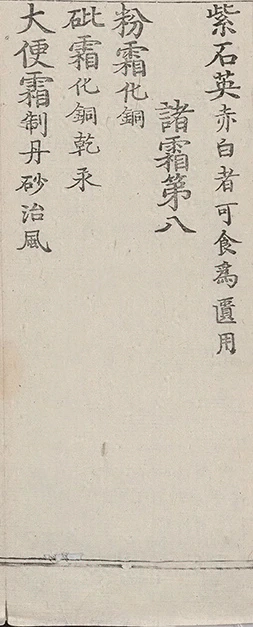 紫石英赤白者可食為匱用
諸霜第八
粉霜化銅
砒霜化銅乾汞
大便霜制丹砂治風